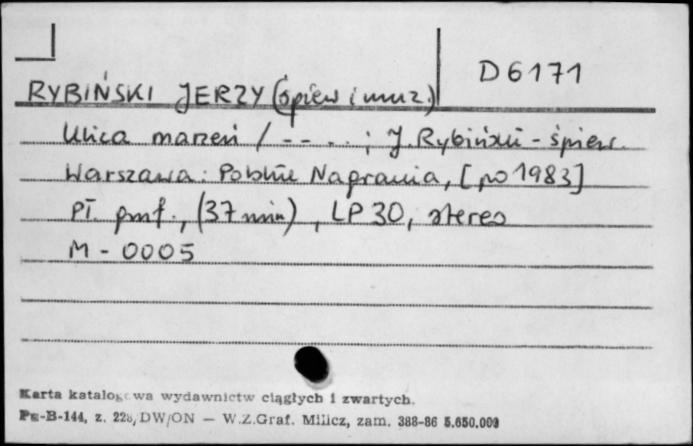 D 6171
RYBIŃSKI JERZY (śpiew i muz.)
Ulica marzeń / - - . . ; J. Rybiński - śpiew.
Warszawa : Polskie Nagrania, [po 1983]
Pł. gmf., (37 min), LP 30, stereo
M - 0005
Karta katalogowa wydawnictw ciągłych i zwartych.
Pu-B-144, z. 228/DW/ON — W.Z.Graf. Milicz, zam. 388-86 5.650.000